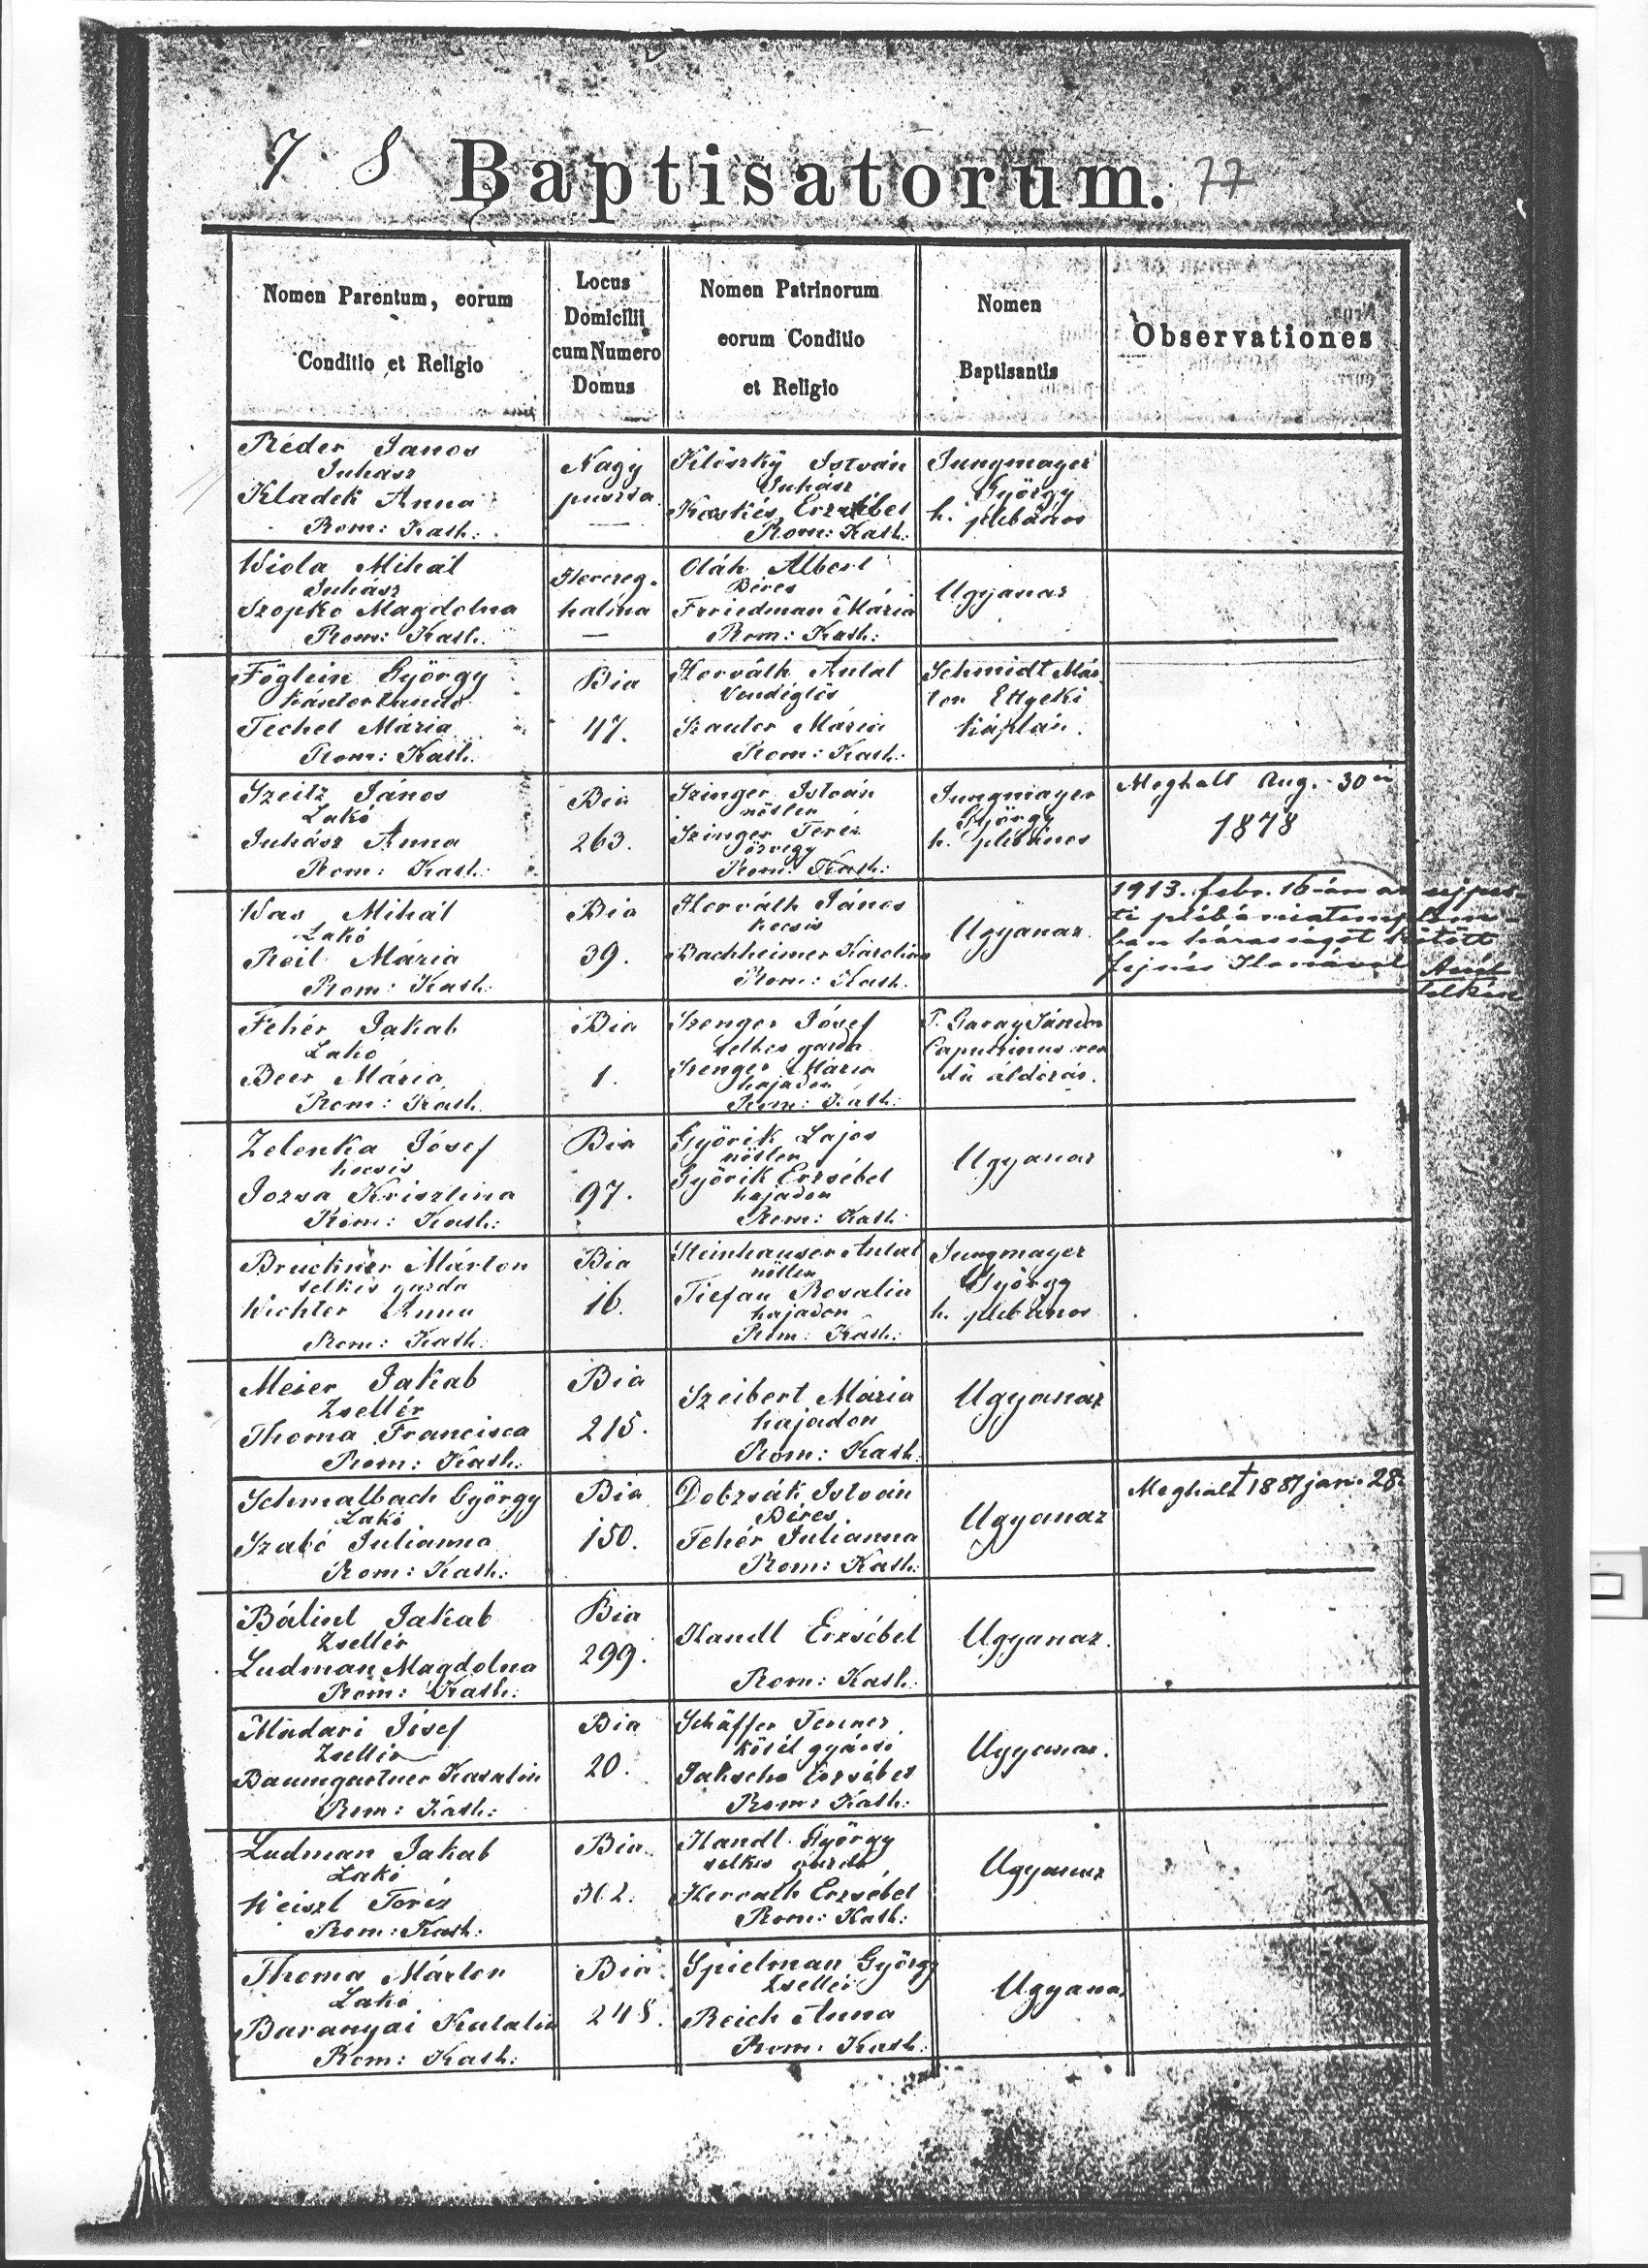 7. 8 Baptisatorum. 77
Nomen Parentum, eorum
Conditio et Religio
Locus
Domicilii
cum Numero
Domus
Nomen Patrinorum
eorum Conditio
et Religio
Nomen
Baptisantis
Observationes
Réder Janos
Juhász
Kladek Anna
Rom: Kath:
Nagy
puszta
István
Juhász
Erzsébet
Rom: Kath:
Jungmayer
György
h. plébános
Wiola Mihál
Juhász
Szopko Magdolna
Rom: Kath.
Herczeg-
halma
Oláh Albert
Béres
Friedman Mária
Rom: Kath:
Ugyanaz
Föglein György
Kántortanító
Techet Mária
Rom: Kath.
Bia
47.
Horváth Antal
Vendéglős
Kauter Mária
Rom: Kath:
Schmidt Már
ton Ettyeki
káplán.
Szeitz János
Lakó
Juhász Anna
Rom: Kath:
Bia
263.
Szinger István
nőtlen
Szinger Teréz
özvegy
Rom: Kath:
Jungmayer
György
h. plébános
Meghalt Aug. 30 án
1878
Was Mihál
Lakó
Reil Mária
Rom: Kath:
Bia
39.
Horváth János
kocsis
Bachheimer Karolina
Rom: Kath:
Ugyanaz.
1913. febr. 16-án az ujpes-
ti plébániatemplom-
ban házasságot kötött
Ilonával
Fehér Jakab
Lakó
Beer Mária
Rom: Kath.
Bia
1.
Szenger Jósef
telkes gazda
Szenger Mária
hajadon
Rom: Kath:
P. Garay Sándor
Capucinus ren
dü áldozár.
Zelenka Jósef
kocsis
Jozsa Krisztina
Rom: Kath:
Bia
97.
Györik Lajos
nőtlen
Györik Erzsébet
hajadon
Rom: Kath:
Ugyanaz
Bruckner Márton
telkes gazda
Wichter Anna
Rom: Kath:
Bia
16.
Steinhauser Antal
nőtlen
Tiefau Rosalia
hajadon
Rom: Kath:
Jungmayer
György
h. plébános
Meier Jakab
Zsellér
Thoma Francisca
Rom: Kath:
Bia
215.
Szeibert Mária
hajadon
Rom: Kath
Ugyanaz
Schmalbach György
Lakó
Szabó Julianna
Rom: Kath:
Bia
150.
Dobzsák István
Béres.
Fehér Julianna
Rom: Kath:
Ugyanaz
Meghalt † 1881 jan. 28.
Bálint Jakab
Zsellér
Ludman Magdolna
Rom: Kath:
Bia
299.
Handl Erzsébet
Rom: Kath:
Ugyanaz.
Madari Jósef
Zsellér
Baumgartner Katalin
Rom: Kath:
Bia
20.
Schäffer Ferencz
kötél gyártó
Jakscho Erzsébet
Rom: Kath:
Ugyanaz.
Ludman Jakab
Lakó
Weiszl Teréz
Rom: Kath:
Bia.
302.
Handl György
telkes gazda
Horvath Erzsébet
Rom: Kath:
Ugyanaz
Thoma Márton
Lakó
Baranyai Katalin
Rom: Kath:
Bia.
248.
Spielman György
Zsellér
Reich Anna
Rom: Kath:
Ugyanaz